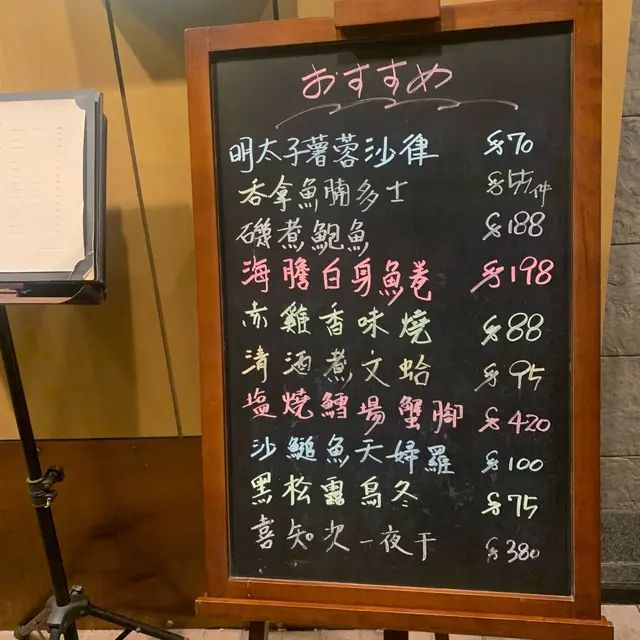 おすすめ
明太子薯蓉沙律 $70
吞拿魚腩多士 $55/件
磯煮鮑魚 $188
海膽白身魚卷 $198
赤雞香味燒 $88
清酒煮文蛤 $95
塩燒鱈場蟹腳 $420
沙鎚魚天婦羅 $100
黑松露烏冬 $75
喜知次一夜干 $380